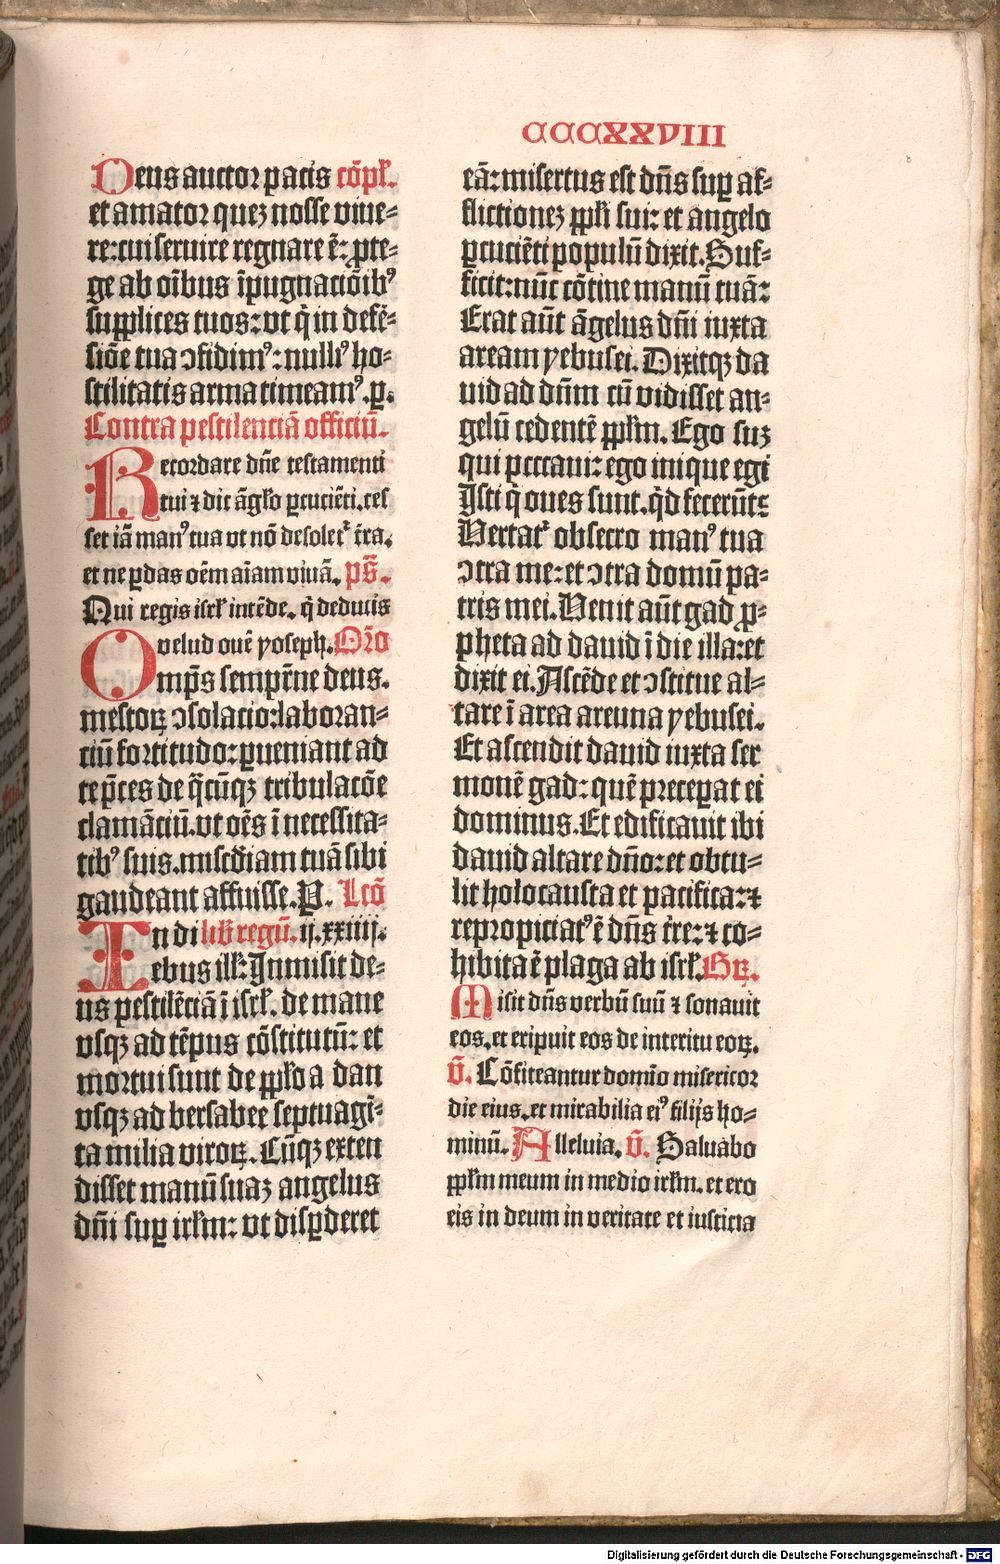 CCCXXVIII
Deus auctor pacis cōpl̄.
et amator quez nosse viue⸗
re: cui seruire regnare ē: ꝓte⸗
ge ab oībus īpugnaciōibꝰ
supplices tuos: vt q̄ in defē⸗
siōe tua ꝯfidimꝰ: nulliꝰ ho⸗
stilitatis arma timeamꝰ. ꝑ.
Contra pestilenciā officiū.
Recordare dn̄e testamenti
tui ⁊ dic āgl̄o ꝑcuciēti. ces
set iā manꝰ tua vt nō desoletˀ t̄ra.
et ne ꝑdas oēm aīam viuā. ps̄.
Qui regis isrl̄ intēde. q̄ deducis
velud ouē yoseph. Or̄o
Omp̄s sempit̄ne deus.
mestoꝝ ꝯsolacio: laboran⸗
ciū fortitudo: ꝑueniant ad
te p̄ces de q̄cūqꝫ tribulacōe
clamāciū. vt oēs ī necessita⸗
tibꝰ suis. misc̄diam tuā sibi
gaudeant affuisse. P. Lcō
In di lib̄ regū. ij. xxiiij.
ebus ill̄: Inmisit de⸗
us pestilēciā ī isrl̄. de mane
vsqꝫ ad tēpus cōstitutū: et
mortui sunt de ppl̄o a dan
vsqꝫ ad bersabee septuagī⸗
ta milia viroꝝ. Cūqꝫ exten
disset manū suaꝫ angelus
dn̄i suꝑ irl̄m: vt disꝑderet
eā: misertus est dn̄s suꝑ af⸗
flictioneꝫ ppl̄i sui: et angelo
ꝑcuciēti populū dixit. Suf⸗
ficit: nūc cōtine manū tuā:
Erat aūt āgelus dn̄i iuxta
aream yebusei. Dixitqꝫ da
uid ad dn̄m cū vidisset an⸗
gelū cedentē ppl̄m. Ego suꝫ
qui peccaui: ego inique egi
Isti q̄ oues sunt. q̄d fecerūt:
Vertatˀ obsecro manꝰ tua
ꝯtra me: et ꝯtra domū pa⸗
tris mei. Venit aūt gad ꝓ⸗
pheta ad dauid ī die illa: et
dixit ei. Ascēde et ꝯstitue al⸗
tare ī area areuna yebusei.
Et ascendit dauid iuxta ser
monē gad: quē preceperat ei
dominus. Et edificauit ibi
dauid altare dn̄o: et obtu⸗
lit holocausta et pacifica: ⁊
repropiciatꝰ ē dn̄s t̄re: ⁊ co⸗
hibita ē plaga ab isrl̄. Gꝝ.
Misit dn̄s verbū suū ⁊ sonauit
eos. et eripuit eos de interitu eoꝝ.
v̄. Cōfiteantur domīo misericor
die eius. et mirabilia eiꝰ filijs ho⸗
minū. Alleluia. v̄. Saluabo
ppl̄m meum in medio irl̄m. et ero
eis in deum in veritate et iusticia
Digitalisierung gefördert durch die Deutsche Forschungsgemeinschaft - DFG